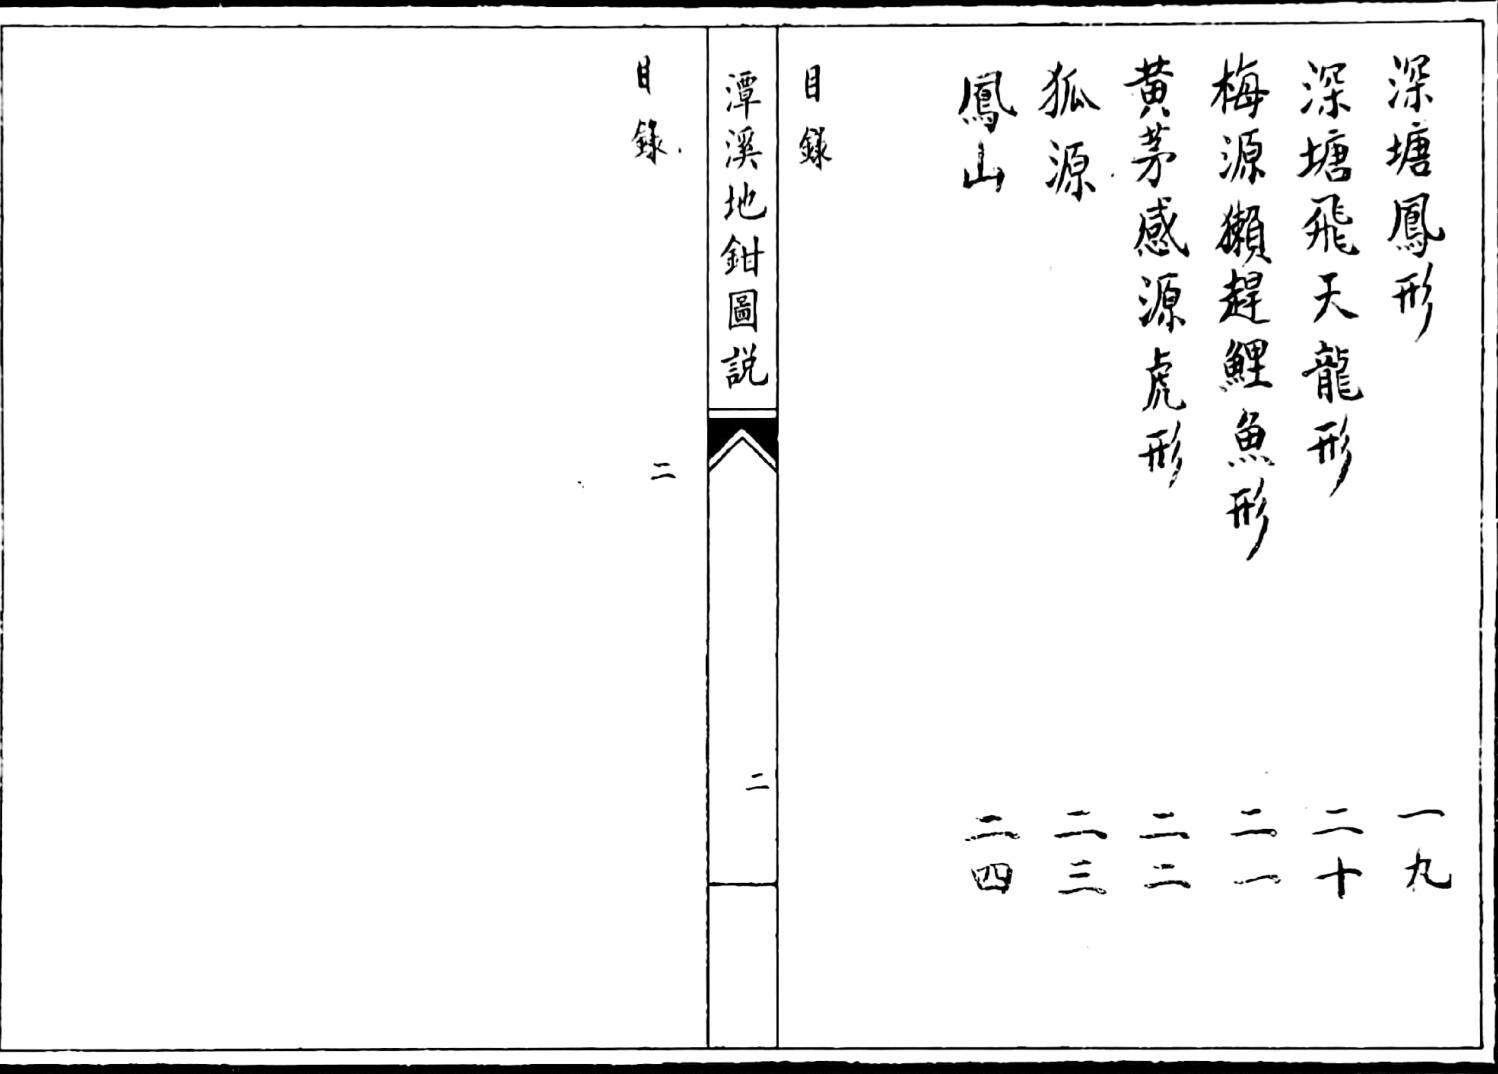 深塘鳳形 一九
深塘飛天龍形 二十
梅源獺趕鯉魚形 二一
黄茅感源虎形 二二
狐源 二三
鳳山 二四
目錄
潭溪地鉗圖説 二
目錄 二